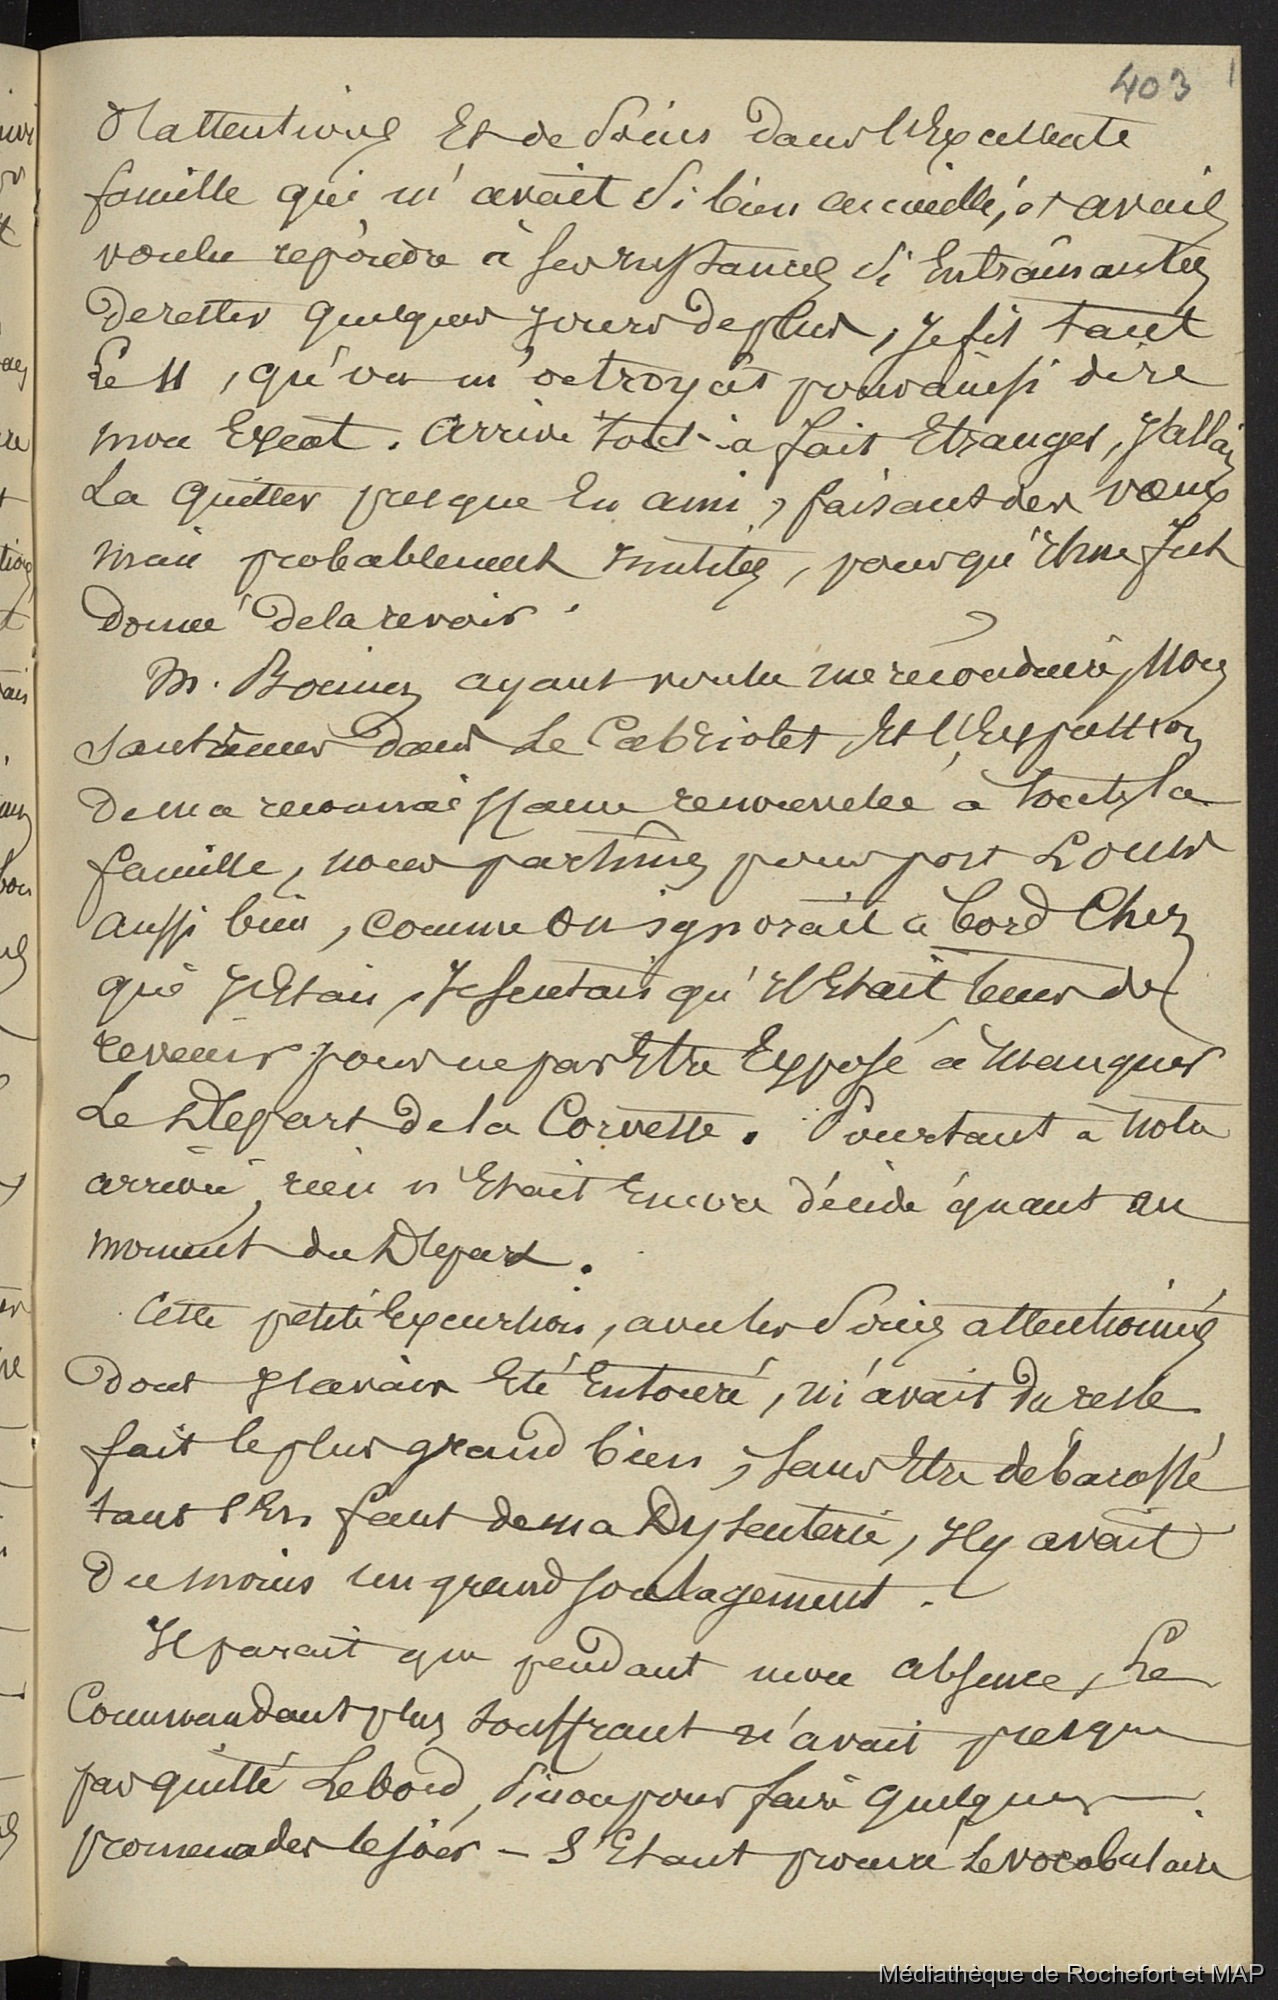 403
D'attentions Et de Soins Dans l'Excellente
famille qui m'avait Si bien accueilli, et avais
voulu repondre à Ses Instances Si Entraînantes
De rester quelques Jours De plus, Je fis tant
Le 11, qu'on m'octroyât pour ainsi dire
mon Exeat. Arrivé tout-à fait Etranger, J'allais
La quitter presque En ami, faisant des vœux
mais probablement Inutiles, pour qu'Il me fut
Donné De la revoir.
M. Boemer ayant voulu me reconduire, Nous
sautames Dans Le Cabriolet Et l'Expression
De ma reconnaissance renouvelée à toute la
famille, nous partimes pour port Louis
aussi bien, comme On ignorait à bord Chez
qui J'Etais, Je Sentais qu'Il Etait tems de
revenir pour ne pas Etre Exposé à Manquer
Le Départ De la Corvette. Pourtant à Notre
arrivée, rien n'Etait Encore décidé quant au
moment du Départ.
Cette petite Excursion, avec les Soins attentionnés
Dont J'avais Eté Entouré, m'avait Du reste
fait le plus grand bien, Sans Etre débarassé
tant S'En faut de ma Dysenterie, Il y avait
Du moins un grand Soulagement.
Il parait que pendant mon absence, Le
Commandant plus Souffrant n'avait presque
pas quitté Le bord, Sinon pour faire quelques
promenades le soir – S'Etant procuré Le vocabulaire
Médiathèque de Rochefort et MAP